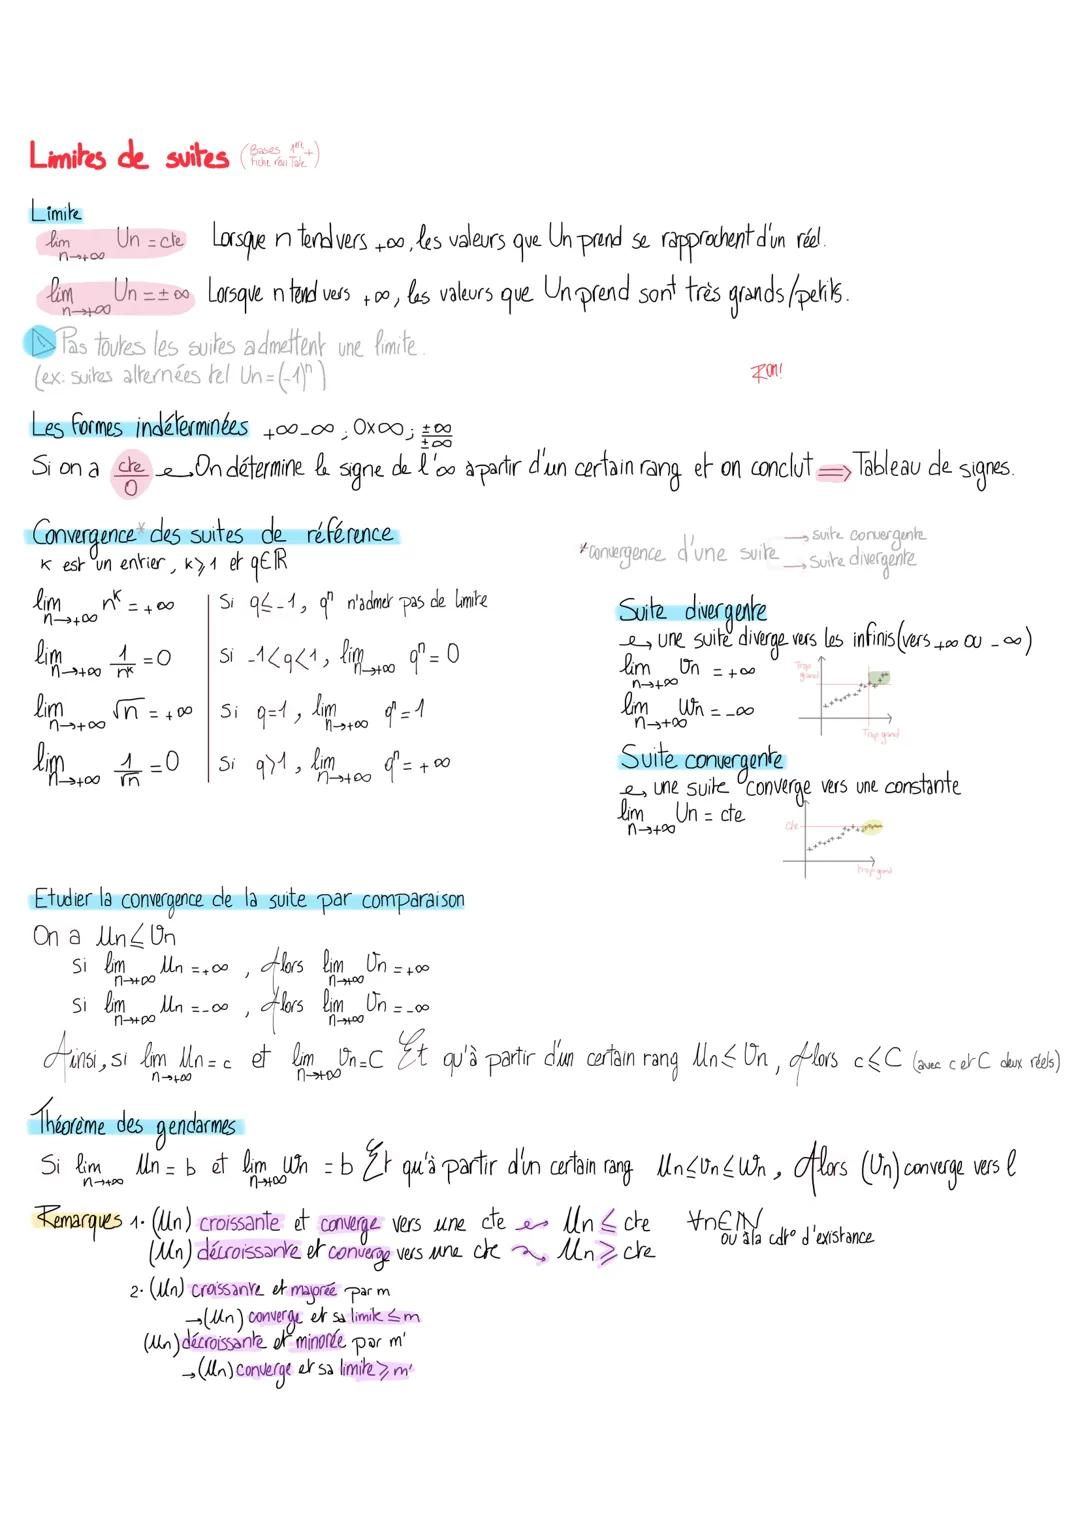 Limites de suites (Bases 1ère + fiche révi Tale)
Limite
lim n→+∞ Un = cte Lorsque n tend vers +∞, les valeurs que Un prend se rapprochent d'un réel.
lim n→+∞ Un = ±∞ Lorsque n tend vers +∞, les valeurs que Un prend sont très grands/petits.
Pas toutes les suites admettent une limite.
(ex: suites alternées tel Un=(-1)ⁿ)
Les formes indéterminées +∞-∞ ; 0×∞ ; ±∞/±∞
Si on a cte/0 On détermine le signe de l'∞ à partir d'un certain rang et on conclut ⟹ Tableau de signes.
Convergence* des suites de référence
K est un entier, K⩾1 et q∈ℝ
lim n→+∞ nᴷ = +∞
lim n→+∞ 1/nᴷ = 0
lim n→+∞ √n = +∞
lim n→+∞ 1/√n = 0
Si q≤-1, qⁿ n'admet pas de limite
Si -1<q<1, lim n→+∞ qⁿ = 0
Si q=1, lim n→+∞ qⁿ = 1
Si q>1, lim n→+∞ qⁿ = +∞
*convergence d'une suite → suite convergente
→ suite divergente
Suite divergente
une suite diverge vers les infinis (vers +∞ ou -∞)
lim n→+∞ Vn = +∞
lim n→+∞ Wn = -∞
Trop grand
Trop grand
Suite convergente
une suite converge vers une constante
lim n→+∞ Un = cte
cte
trop grand
Etudier la convergence de la suite par comparaison
On a Un≤Vn
Si lim n→+∞ Un = +∞, Alors lim n→+∞ Vn = +∞
Si lim n→+∞ Un = -∞, Alors lim n→+∞ Vn = -∞
Ainsi, si lim n→+∞ Un = c et lim n→+∞ Vn = C Et qu'à partir d'un certain rang Un≤Vn, Alors c≤C (avec c et C deux réels)
Théorème des gendarmes
Si lim n→+∞ Un = b et lim n→+∞ Wn = b Et qu'à partir d'un certain rang Un≤Vn≤Wn, Alors (Vn) converge vers l
Remarques 1. (Un) croissante et converge vers une cte Un ≤ cte ∀n∈ℕ
ou à la cdt° d'existance
(Un) décroissante et converge vers une cte Un ⩾ cte
2. (Un) croissante et majorée par m
→ (Un) converge et sa limite ≤ m
(Un) décroissante et minorée par m'
→ (Un) converge et sa limite ⩾ m'